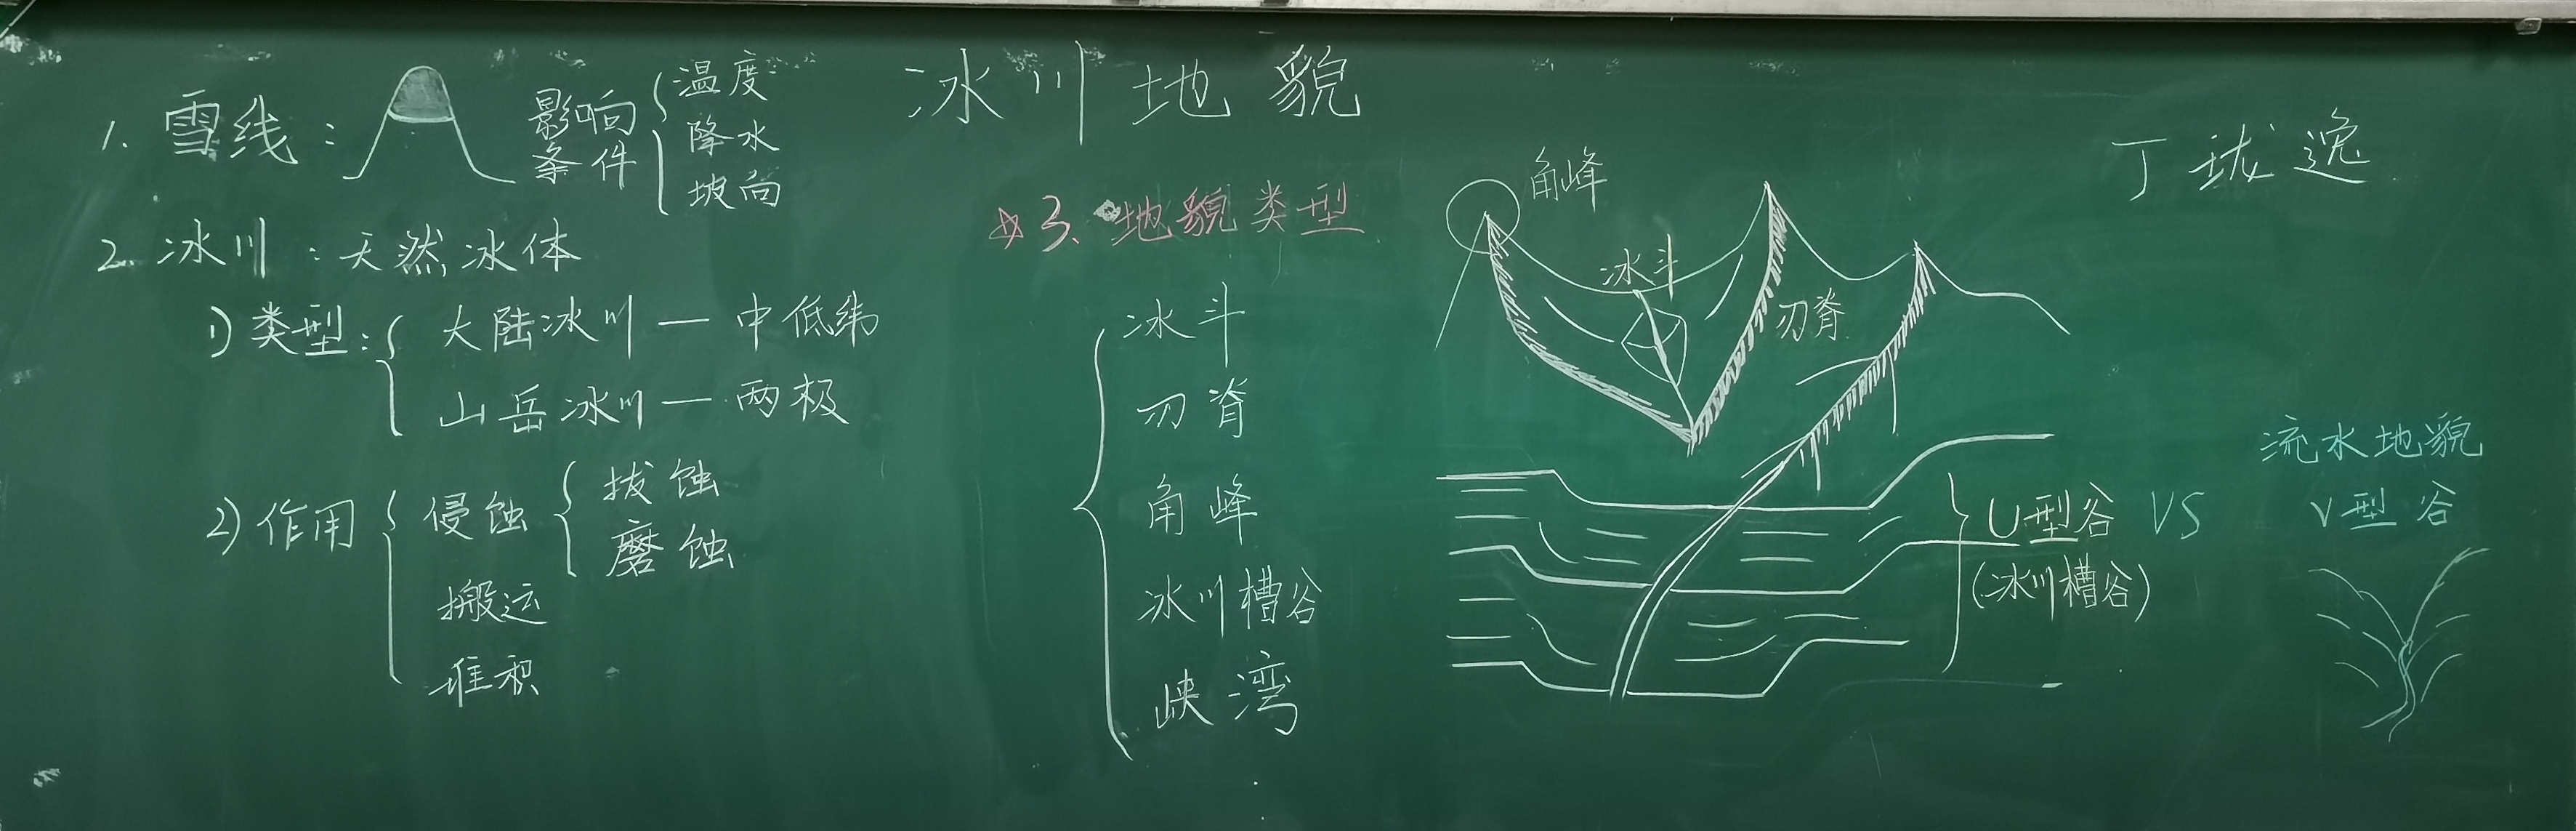 冰川地貌
丁珑逸
1. 雪线:
影响条件
温度
降水
坡向
2. 冰川:天然冰体
1) 类型:
大陆冰川—中低纬
山岳冰川—两极
2) 作用
侵蚀
拔蚀
磨蚀
搬运
堆积
☆3. 地貌类型
冰斗
刃脊
角峰
冰川槽谷
峡湾
角峰
冰斗
刃脊
U型谷 VS
(冰川槽谷)
流水地貌
V型谷